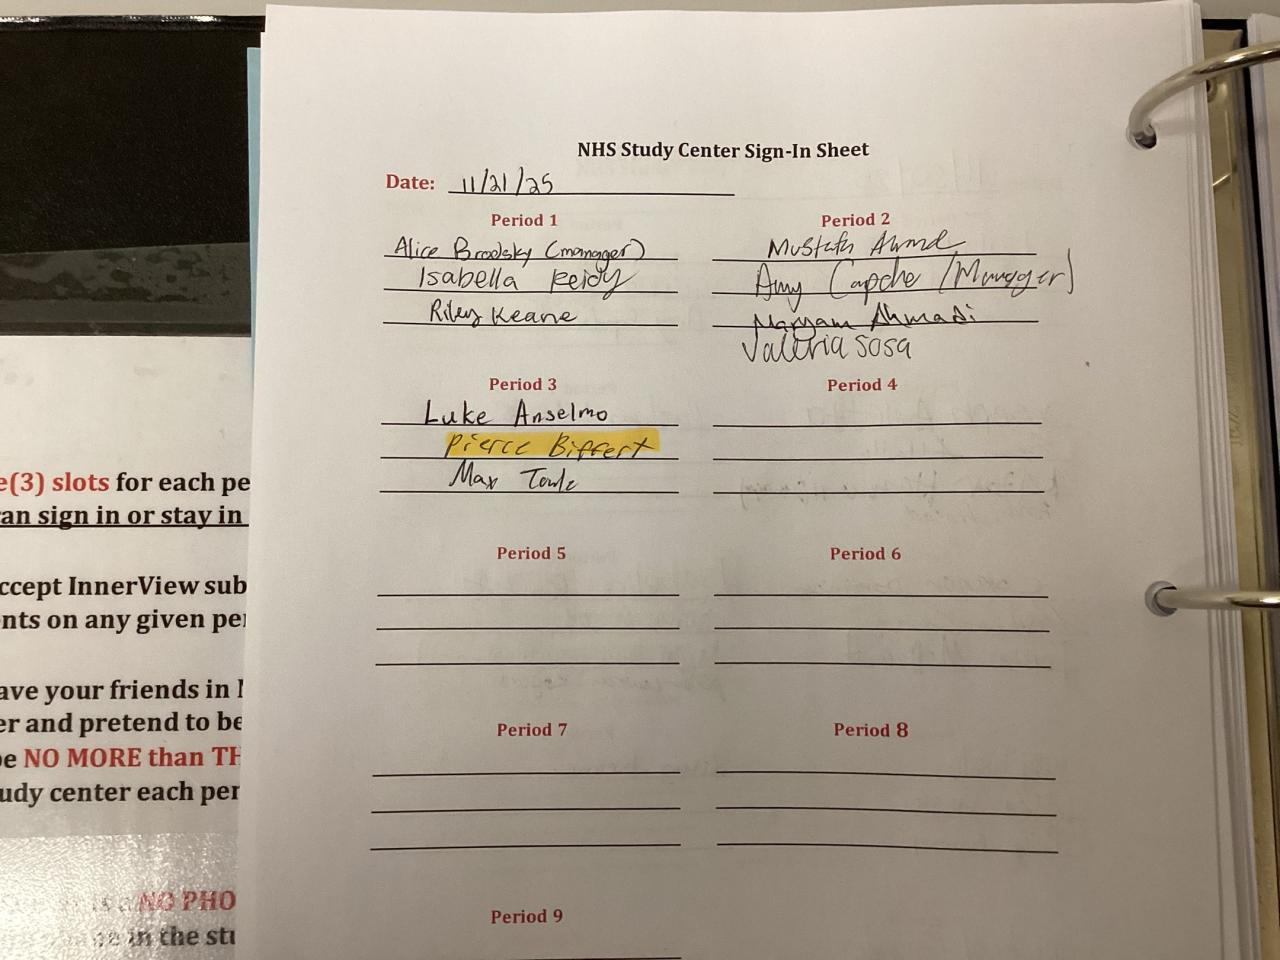 NHS Study Center Sign-In Sheet
Date: 11/21/25
Period 1
Alice Brodsky (manager)
Isabella Reidy
Riley Keane
Period 2
Mustafa Ahmed
Amy Capche (Manager)
Maryam Ahmadi
Valeria Sosa
Period 3
Luke Anselmo
Pierce Biffert
Max Towle
Period 4
Period 5
Period 6
Period 7
Period 8
Period 9
e(3) slots for each pe
an sign in or stay in
ccept InnerView sub
nts on any given per
ave your friends in
er and pretend to be
e NO MORE than TH
udy center each per
NO PHO
in the stu